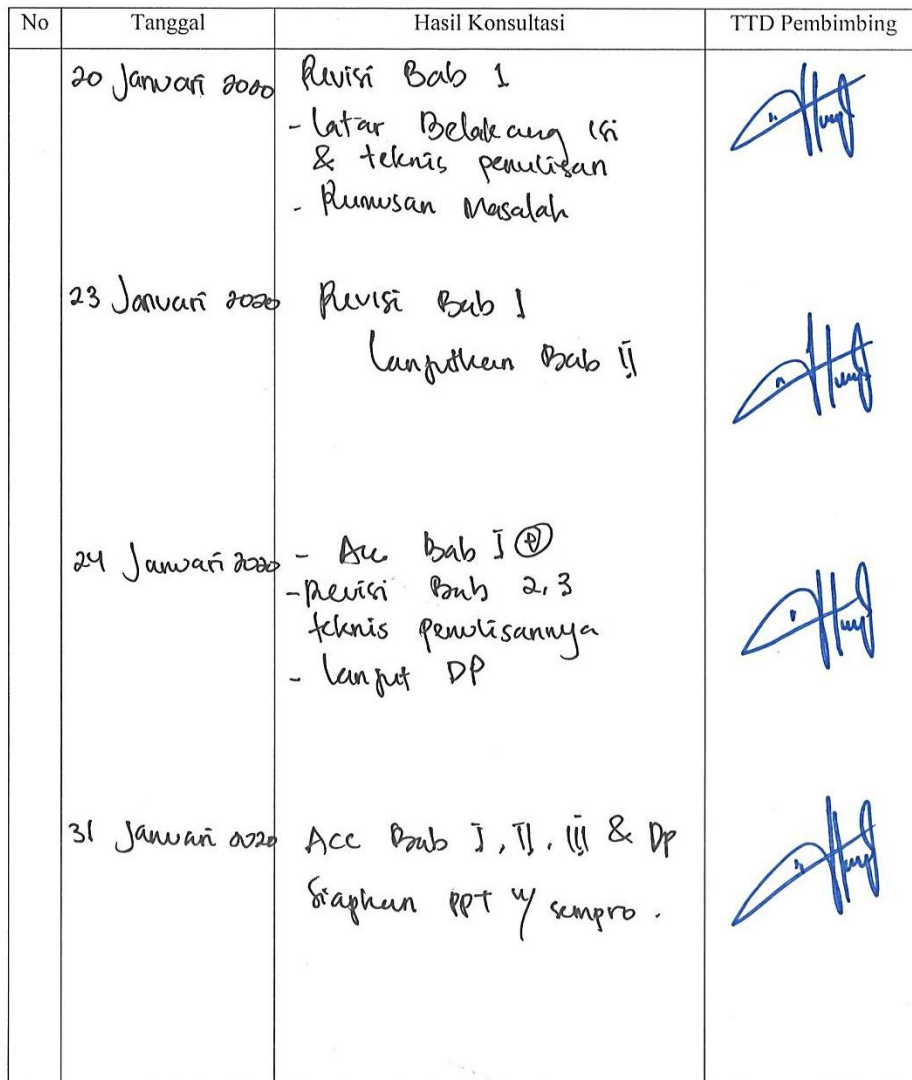 No Tanggal Hasil Konsultasi TTD Pembimbing
20 Januari 2020 Revisi Bab 1
- Latar Belakang isi
& teknis penulisan
- Rumusan Masalah
23 Januari 2020 Revisi Bab I
Lanjutkan Bab II
24 Januari 2020 - Acc Bab I
- Revisi Bab 2, 3
teknis penulisannya
- Lanjut DP
31 Januari 2020 Acc Bab I, II, III & Dp
Siapkan PPT u/ sempro.